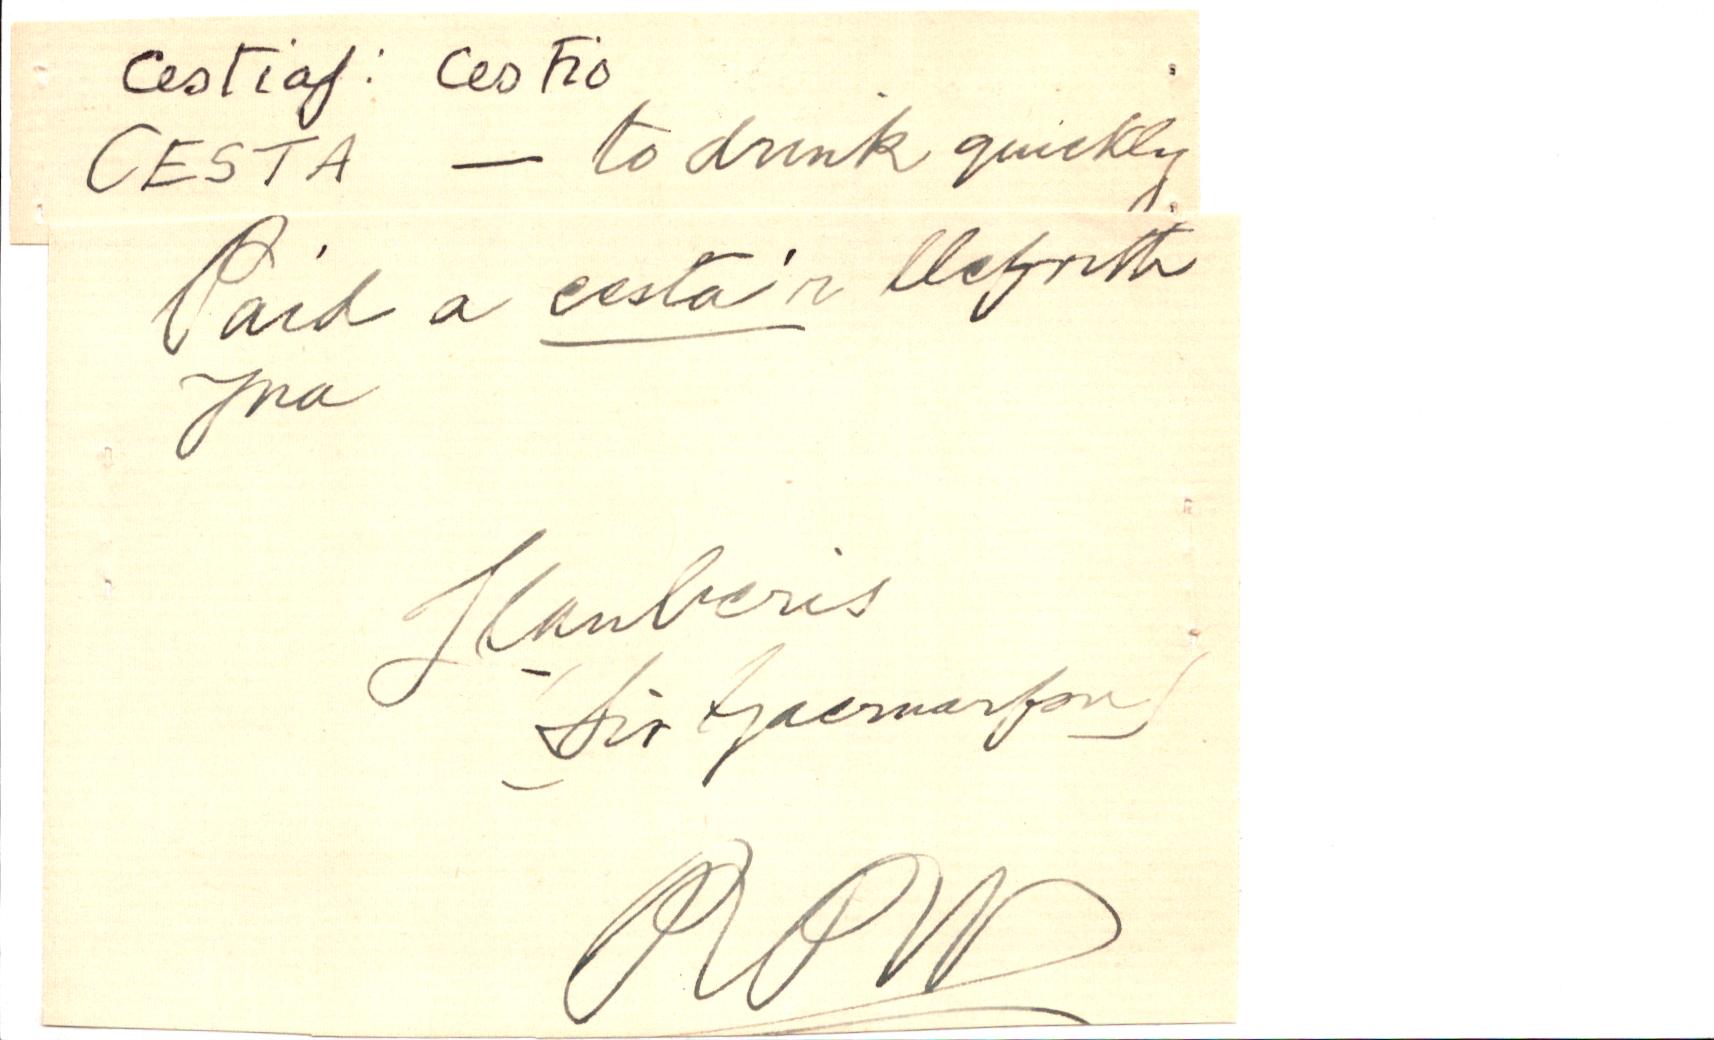 cestiaf: cestio
CESTA — to drink quickly
Paid a cesta'r llefrith
yna
Llanberis
(Sir Gaernarfon)